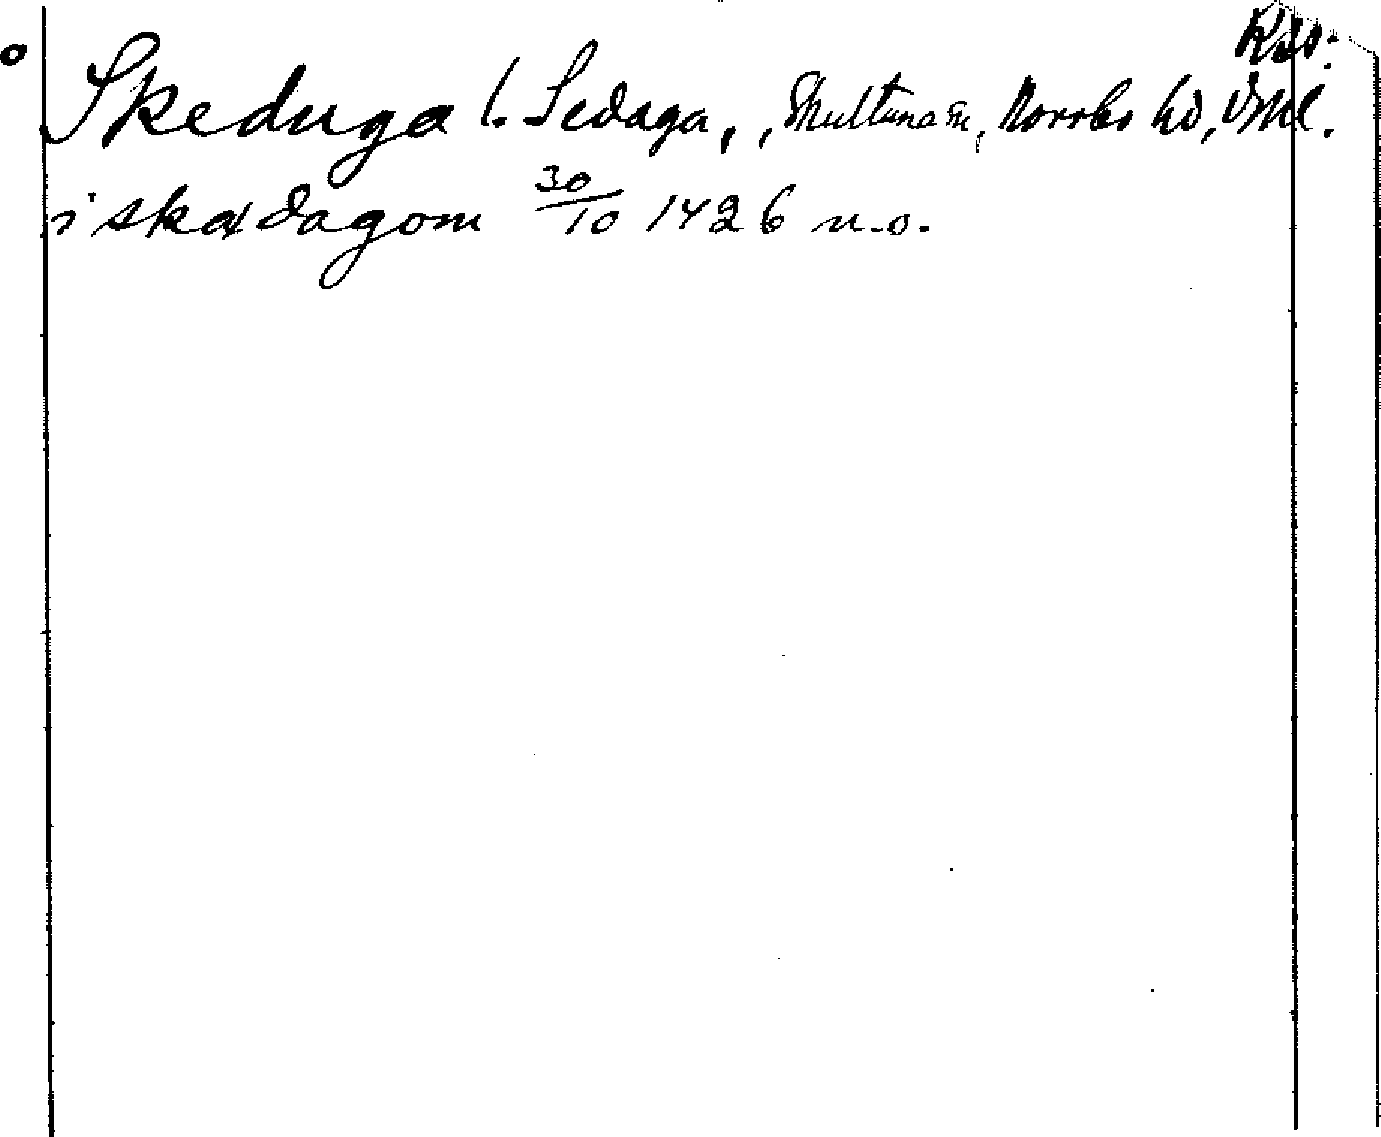 Rso.
Skeduga l. Sedaga, , Skultuna sn, Norrbo hd, Vml.
i skædagom 30/10 1426 n.o.